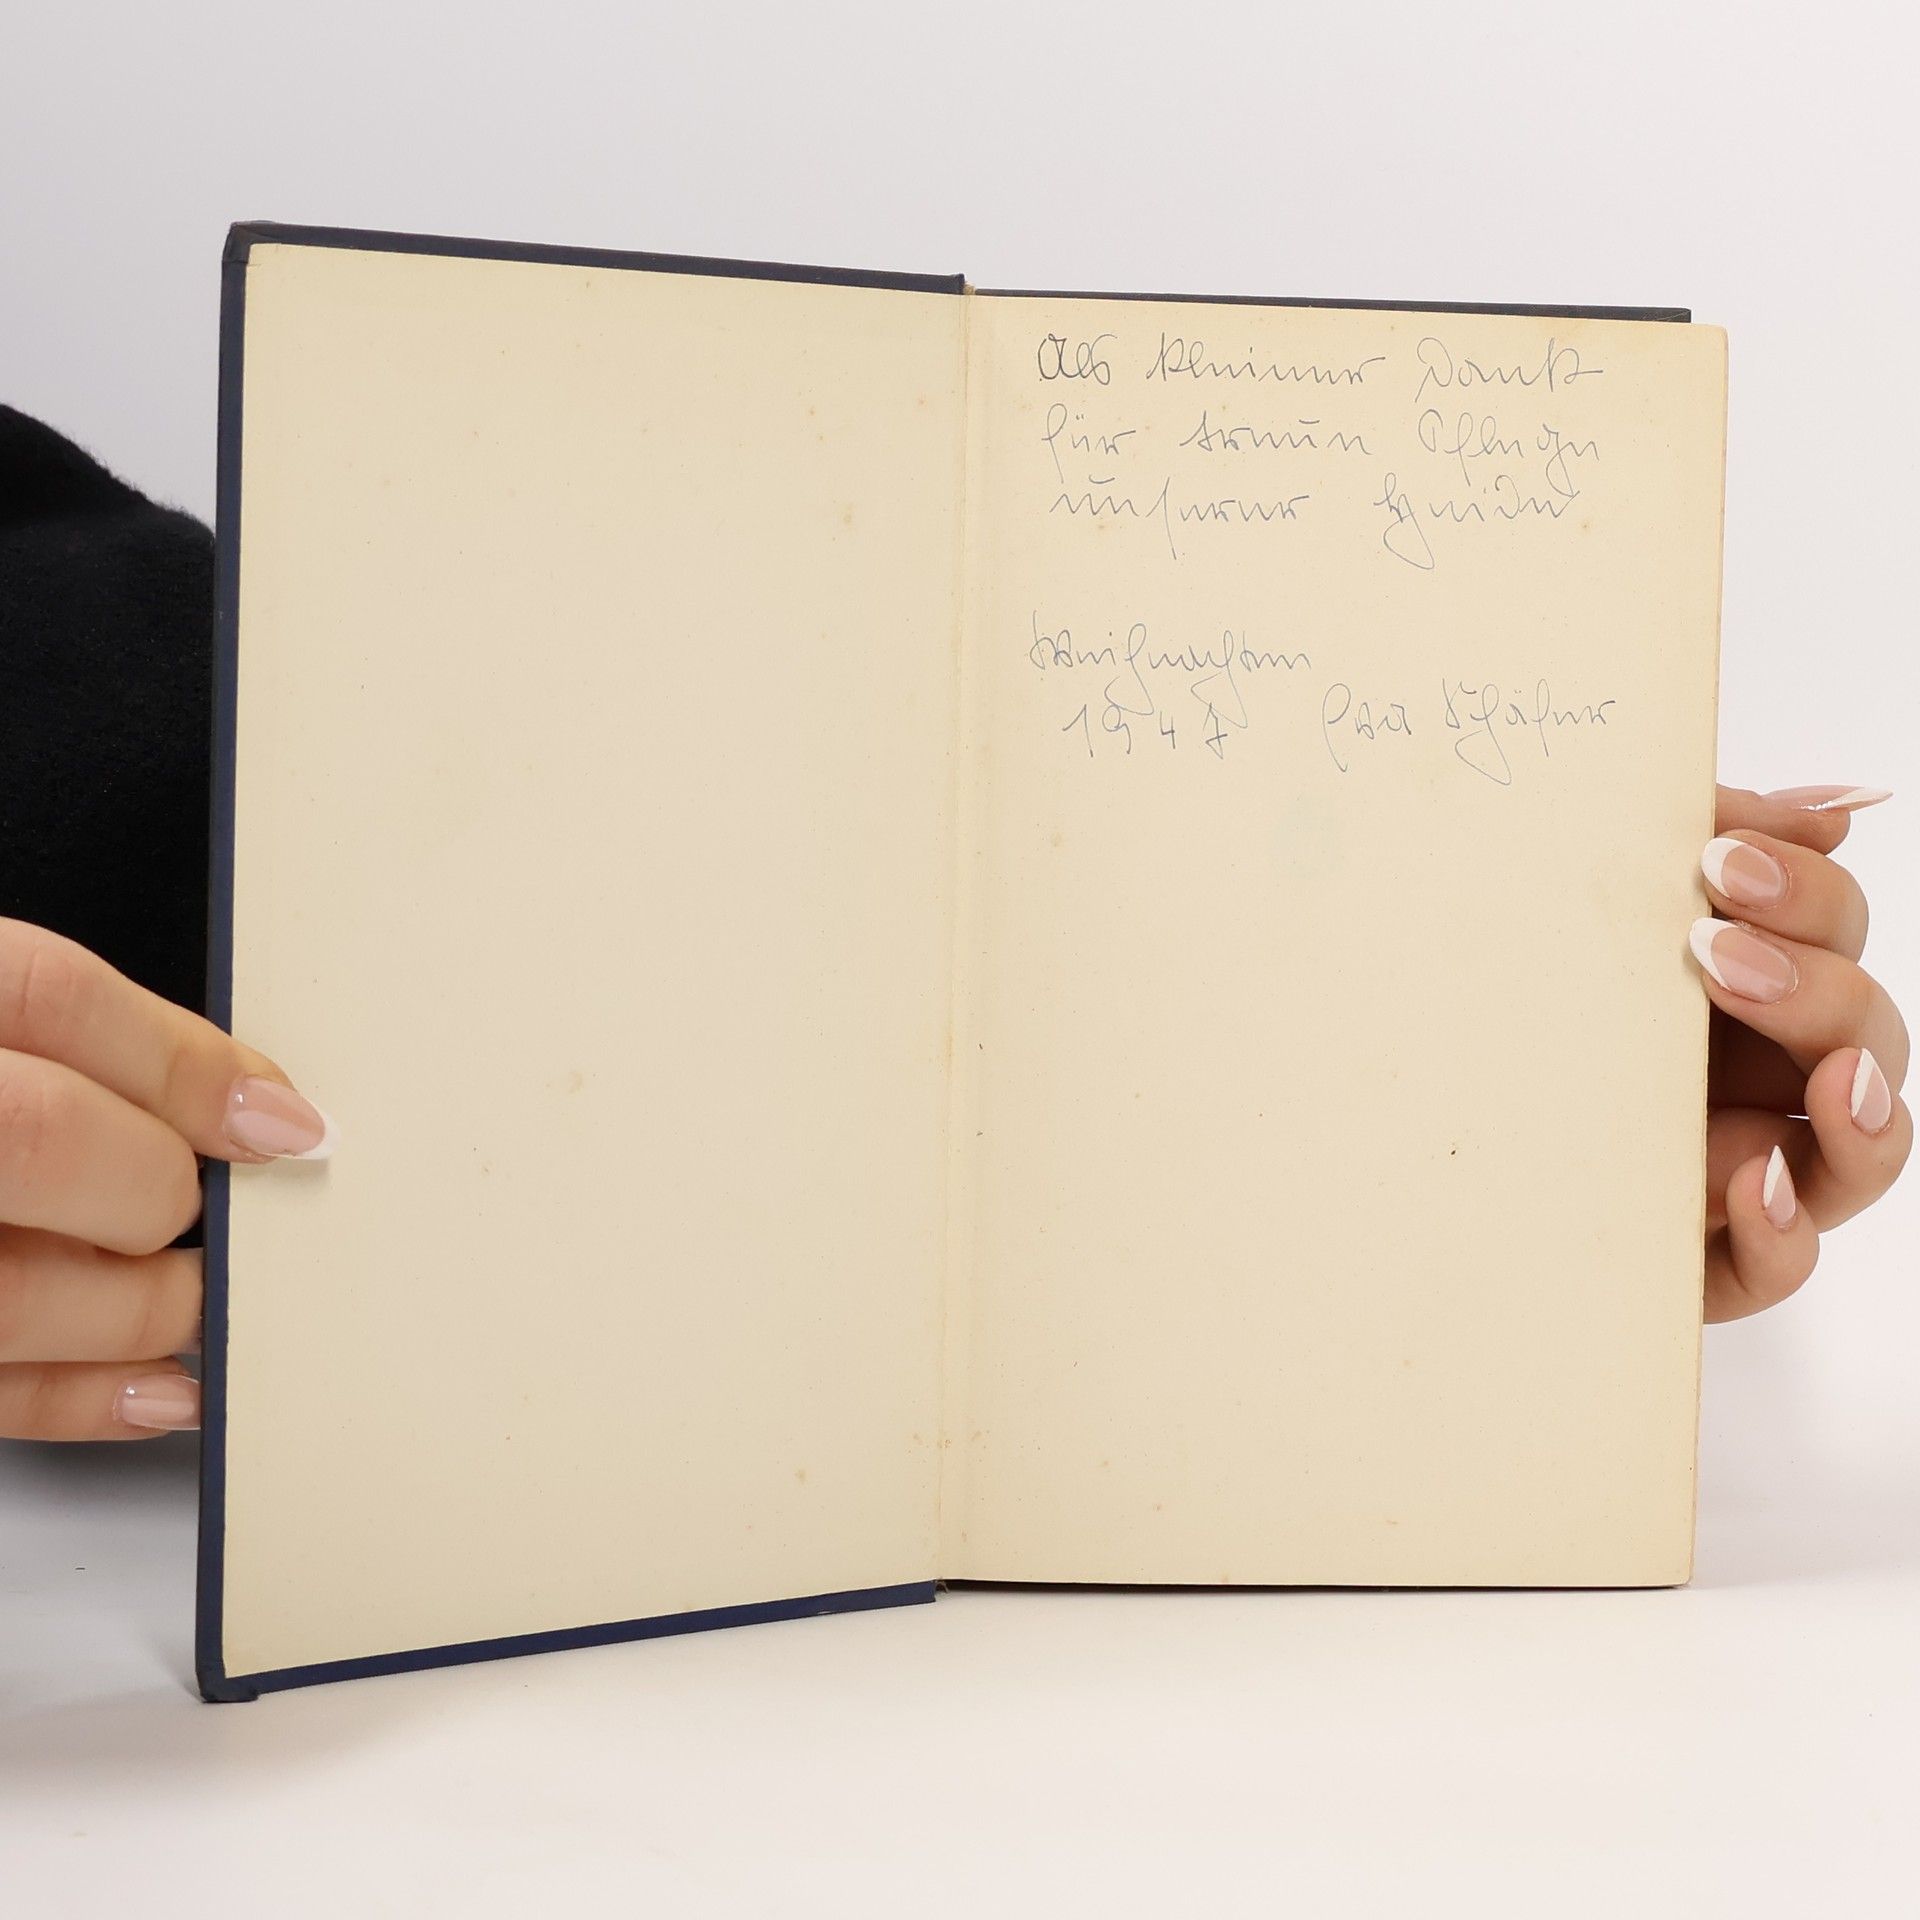 Als kleiner Dank
für treue Pflege
unserer Heide
Weihnachten
1947 Eva Schäfer